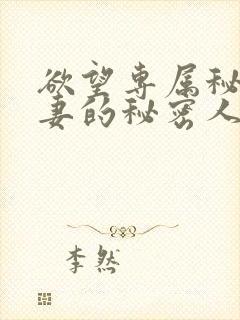 欲望专属秘
妻的秘密人
李然